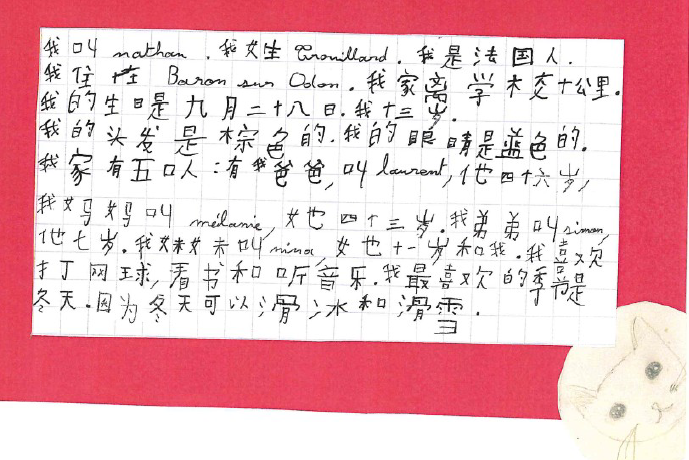 我叫 nathan. 我姓 Trouillard. 我是法国人.
我住在 Baron sur Odon. 我家离学校十公里.
我的生日是九月二十八日. 我十三岁.
我的头发是棕色的. 我的眼睛是蓝色的.
我家有五口人: 有我爸爸, 叫 laurent, 他四十六岁,
我妈妈叫 mélanie, 她四十三岁. 我弟弟叫 simon,
他七岁. 我妹妹叫 nina, 她十一岁和我. 我喜欢
打网球, 看书和听音乐. 我最喜欢的季节是
冬天. 因为冬天可以滑冰和滑雪.